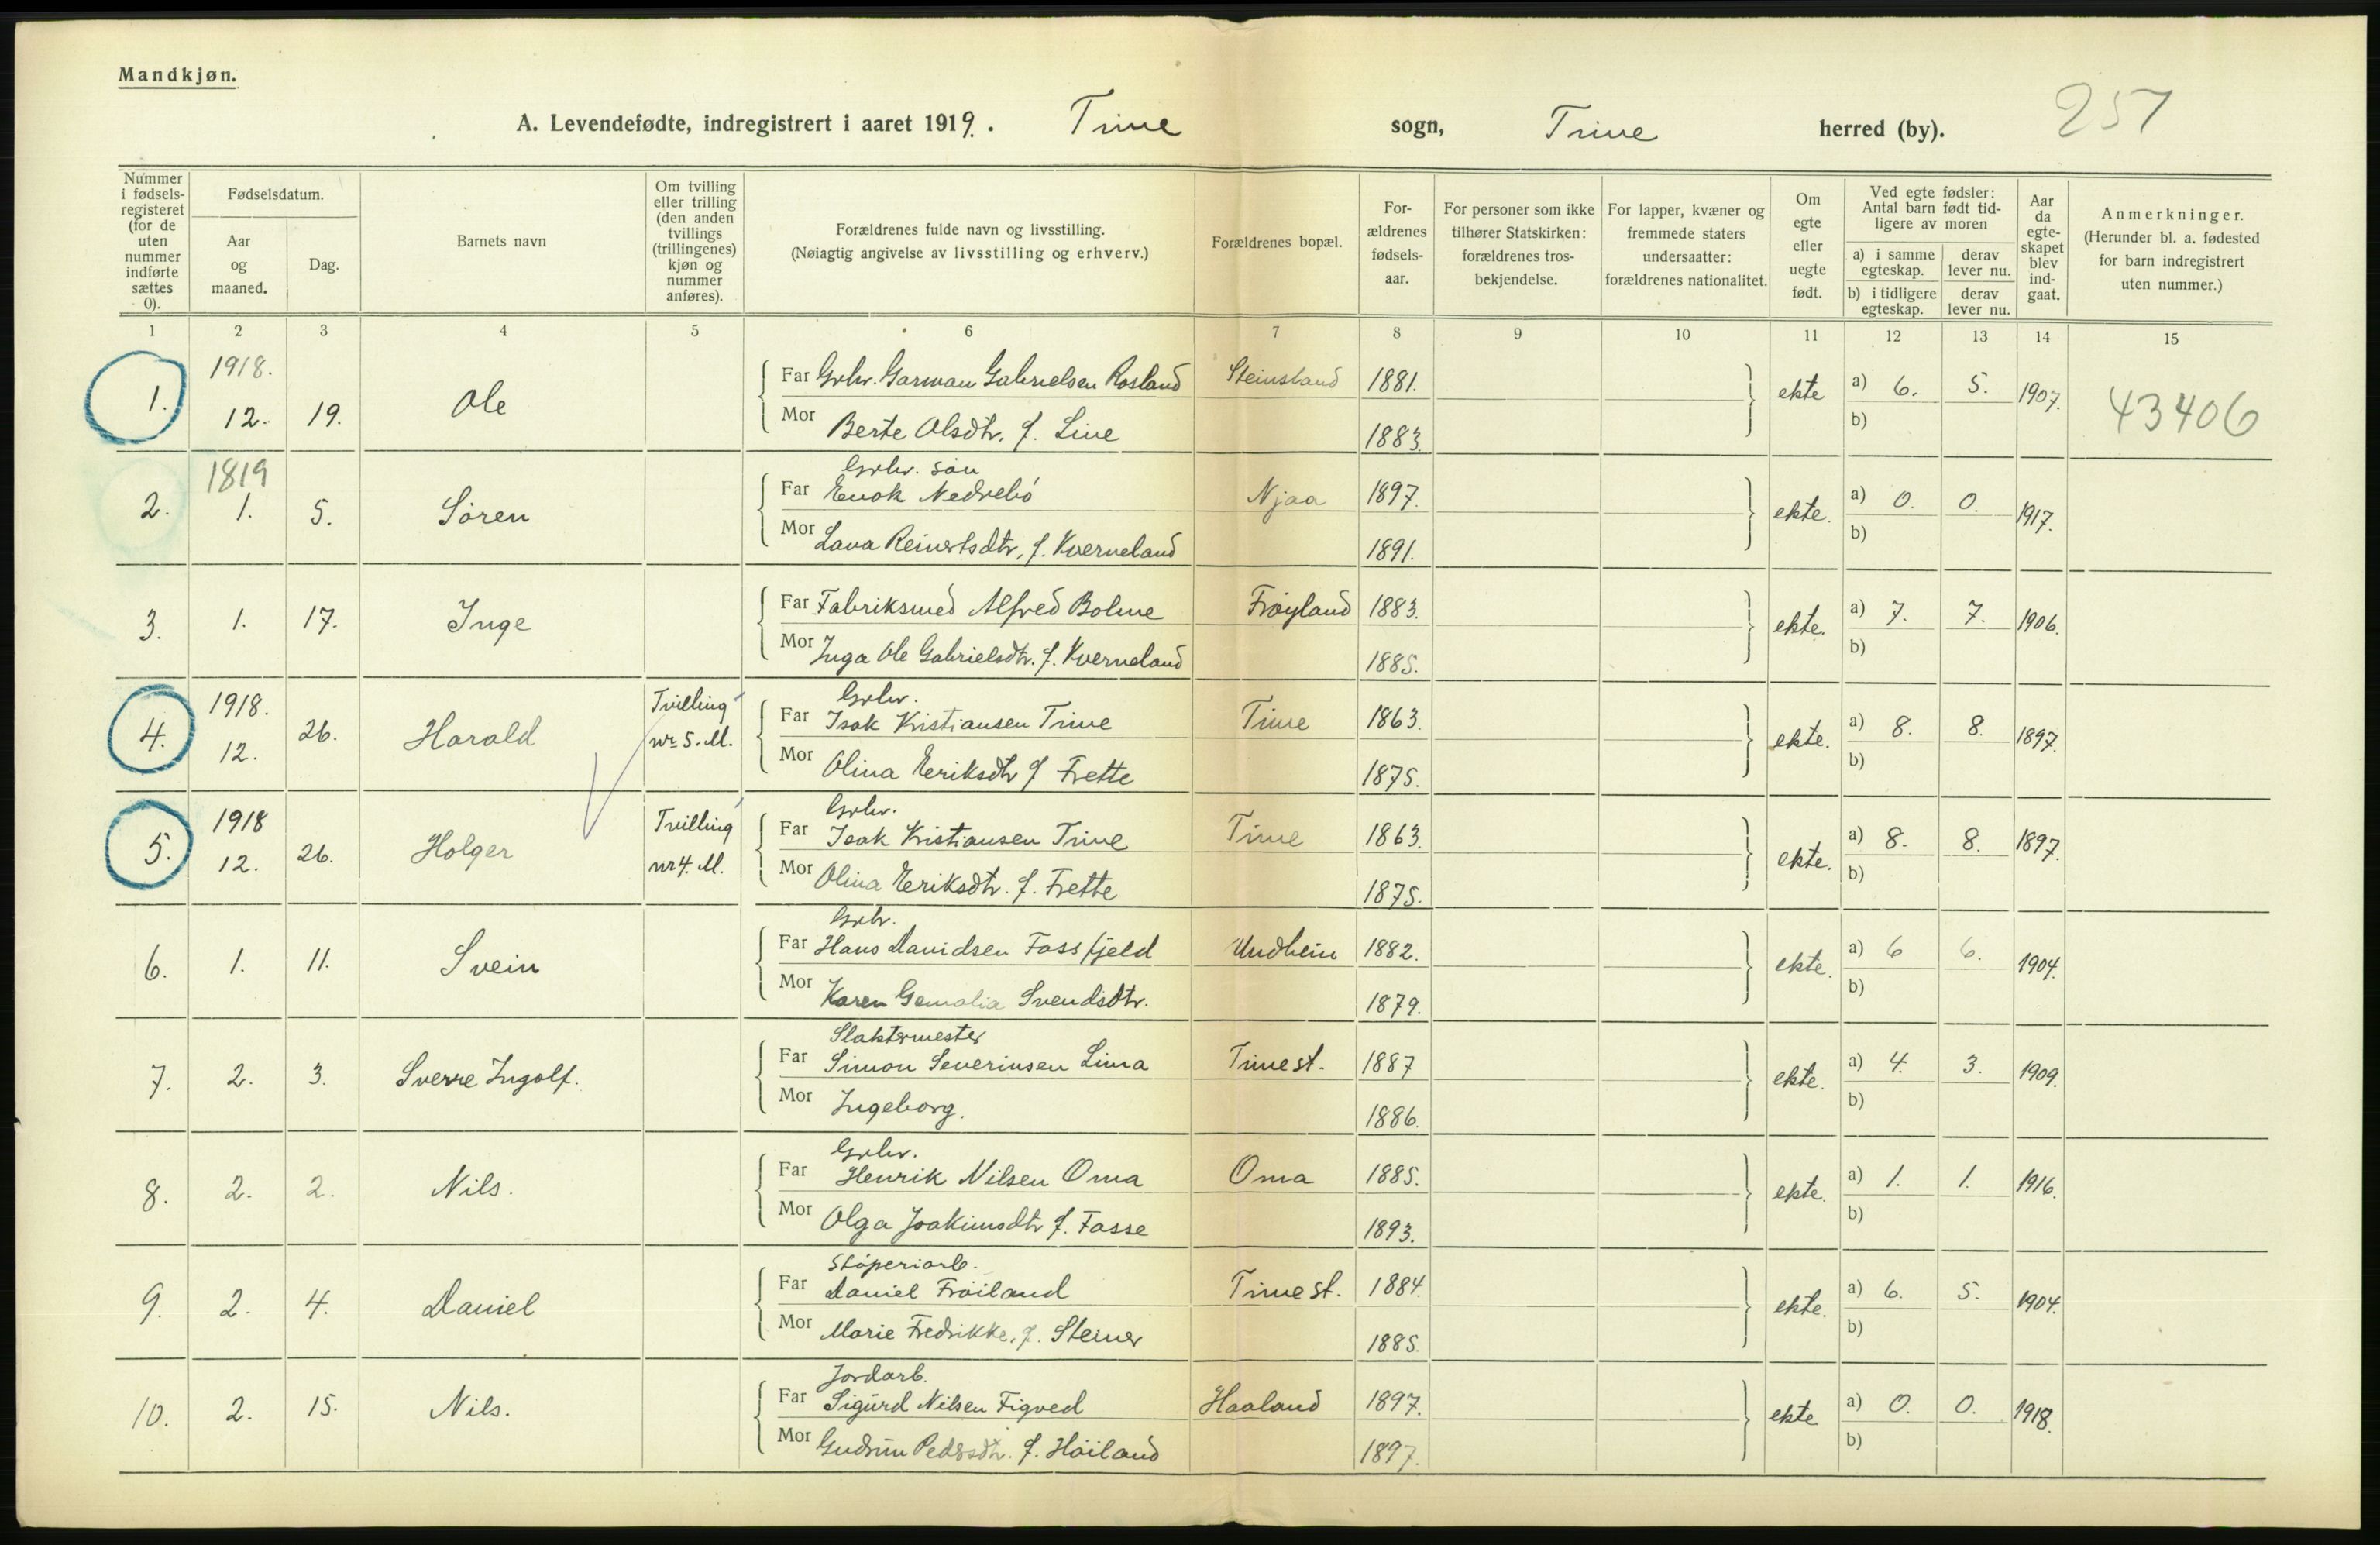 Mandkjøn.
A. Levendefødte, indregistrert i aaret 1919. Time sogn, Time herred (by). 257
Nummer i fødsels-registeret (for de uten nummer indførte sættes 0).
Fødselsdatum.
Aar og maaned.
Dag.
Barnets navn
Om tvilling eller trilling (den anden tvillings (trillingenes) kjøn og nummer anføres).
Forældrenes fulde navn og livsstilling.
(Nøiagtig angivelse av livsstilling og erhverv.)
Forældrenes bopæl.
For-ældrenes fødsels-aar.
For personer som ikke tilhører Statskirken: forældrenes tros-bekjendelse.
For lapper, kvæner og fremmede staters undersaatter: forældrenes nationalitet.
Om egte eller uegte født.
Ved egte fødsler: Antal barn født tid-ligere av moren
a) i samme egteskap.
derav lever nu.
b) i tidligere egteskap.
derav lever nu.
Aar da egte-skapet blev ind-gaat.
Anmerkninger.
(Herunder bl. a. fødested for barn indregistrert uten nummer.)
1 2 3 4 5 6 7 8 9 10 11 12 13 14 15
1. 1918. 12. 19. Ole Far Grbr. Garman Gabrielsen Rosland Steinsland 1881. ekte a) 6. 5. 1907. 43406
Mor Berte Olsdtr. f. Line 1883. b)
2. 1819 1. 5. Sören Grbr. sön
Far Enok Nedrebö Njaa 1897. ekte. a) 0. 0. 1917.
Mor Lava Reinertsdtr, f. Kverneland 1891. b)
3. 1. 17. Inge Far Fabriksmed Alfred Bolme Fröyland 1883. ekte. a) 7. 7. 1906.
Mor Inga Ole Gabrielsdtr. f. Kverneland 1885. b)
4. 1918. 12. 26. Harald Tvilling nr 5. M. Grbr.
Far Isak Kristiansen Time Time 1863. ekte. a) 8. 8. 1897.
Mor Olina Eeriksdtr f Frette 1875. b)
5. 1918 12. 26. Holger Tvilling nr 4. M. Grbr.
Far Isak Kristiansen Time Time 1863. ekte. a) 8. 8. 1897.
Mor Olina Eeriksdtr. f. Frette 1875. b)
6. 1. 11. Svein Grbr.
Far Hans Davidsen Fossfjeld Undhein 1882. ekte. a) 6 6. 1904.
Mor Karen Gemalia Svendsdtr. 1879. b)
7. 2. 3. Sverre Ingolf. Slaktermester
Far Simon Severinsen Lima Time st. 1887 ekte. a) 4. 3. 1909.
Mor Ingeborg. 1886. b)
8. 2. 2. Nils. Grbr.
Far Henrik Nilsen Oma Oma 1885. ekte. a) 1. 1. 1916.
Mor Olga Joakimsdtr f. Fosse 1893. b)
9. 2. 4. Daniel Stöperiarb.
Far Daniel Fröiland Time st. 1884. ekte. a) 6. 5. 1904.
Mor Marie Fredrikke, f. Steiner 1885. b)
10. 2. 15. Nils. Jordarb.
Far Sigurd Nilsen Figved Haaland 1897. ekte a) 0. 0. 1918.
Mor Gudrun Pedersdtr. f. Höiland 1897. b)